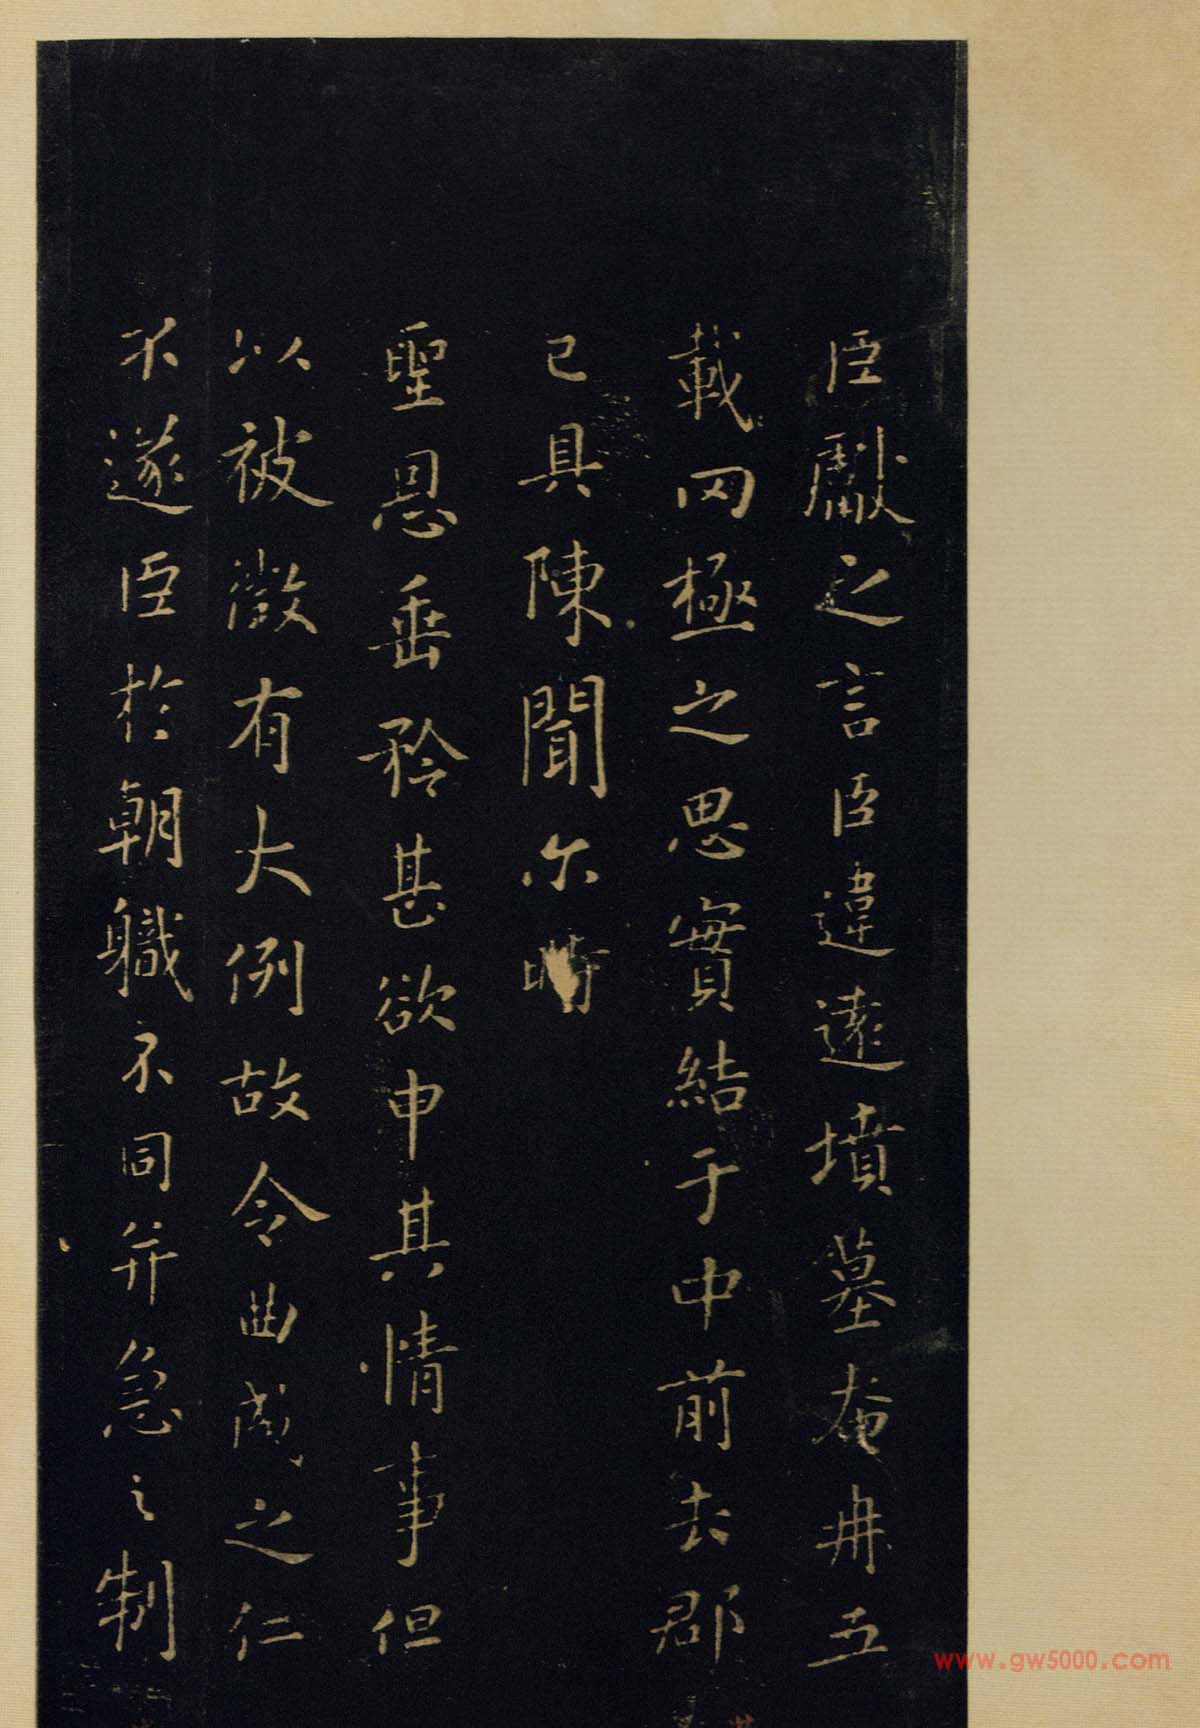 臣獻之言臣違遠墳墓奄冉五
載罔極之思實結于中前去郡
已具陳聞尓時
聖恩垂矜甚欲申其情事但
以被徵有大例故令曲成之仁
不遂臣於朝職不同并急之制
www.gw5000.com